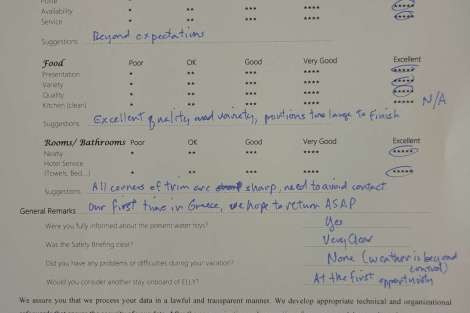 Polite
Availability * ** *** **** *****
Service * ** *** **** *****
Suggestions Beyond expectations
Food Poor OK Good Very Good Excellent
Presentation * ** *** **** *****
Variety * ** *** **** *****
Quality * ** *** **** *****
Kitchen (clean) * ** *** **** ***** N/A
Suggestions Excellent quality and variety, portions too large to finish
Rooms/ Bathrooms Poor OK Good Very Good Excellent
Neatly * ** *** **** *****
Hotel Service
(Towels, Bed...) * ** *** **** *****
Suggestions All corners of trim are sharp, need to avoid contact
General Remarks Our first time in Greece, we hope to return ASAP
Were you fully informed about the present water toys? Yes
Was the Safety Briefing clear? Very Clear
Did you have any problems or difficulties during your vacation? None (weather is beyond control)
Would you consider another stay onboard of ELLY? At the first opportunity
We assure you that we process your data in a lawful and transparent manner. We develop appropriate technical and organizational